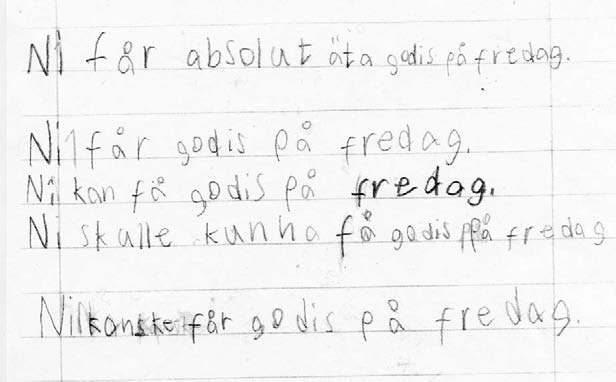 Ni får absolut äta godis på fredag.
Ni får godis på fredag.
Ni kan få godis på fredag.
Ni skulle kunna få godis på fredag
Ni kanske får godis på fredag.